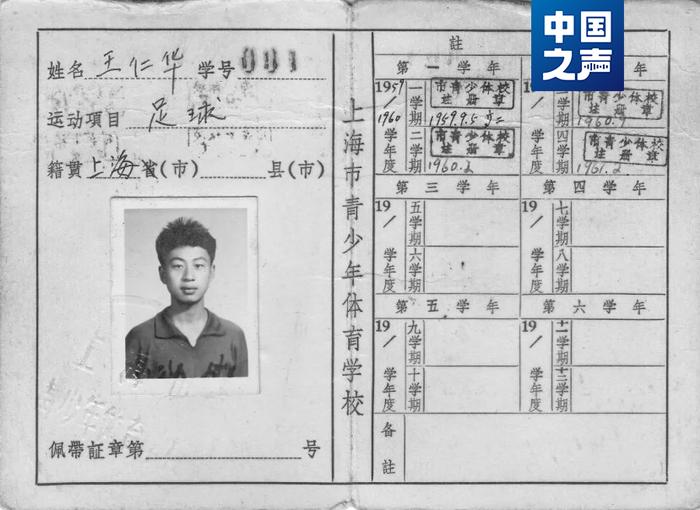 中国
之声
姓名 王仁华 学号 001
运动項目 足球
籍貫 上海 省(市) 县(市)
佩帶証章第 号
上海市青少年体育学校
註
第一学年
年
1959/1960 学年度
一学期
市青少体校
註册章
1959.9.5
二学期
市青少体校
註册章
1960.2
19 /
三学期
市青少体校
註册章
1960.9
四学期
市青少体校
註册章
1961.2
第三学年
第四学年
19 / 学年度
五学期
六学期
19 / 学年度
七学期
八学期
第五学年
第六学年
19 / 学年度
九学期
十学期
19 / 学年度
十一学期
十二学期
备註